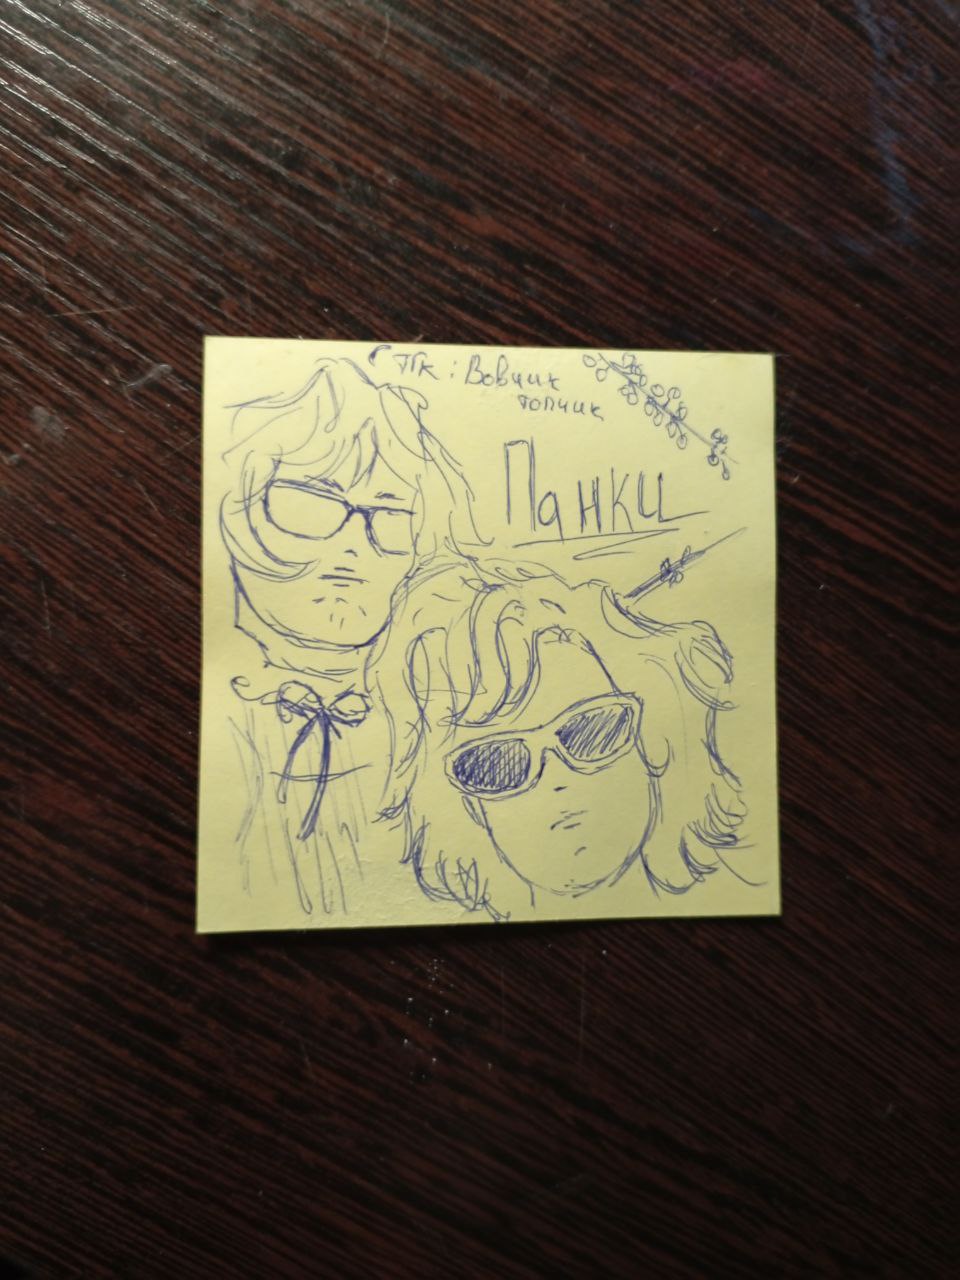 Тгк : Вовчик
топчик
Панки